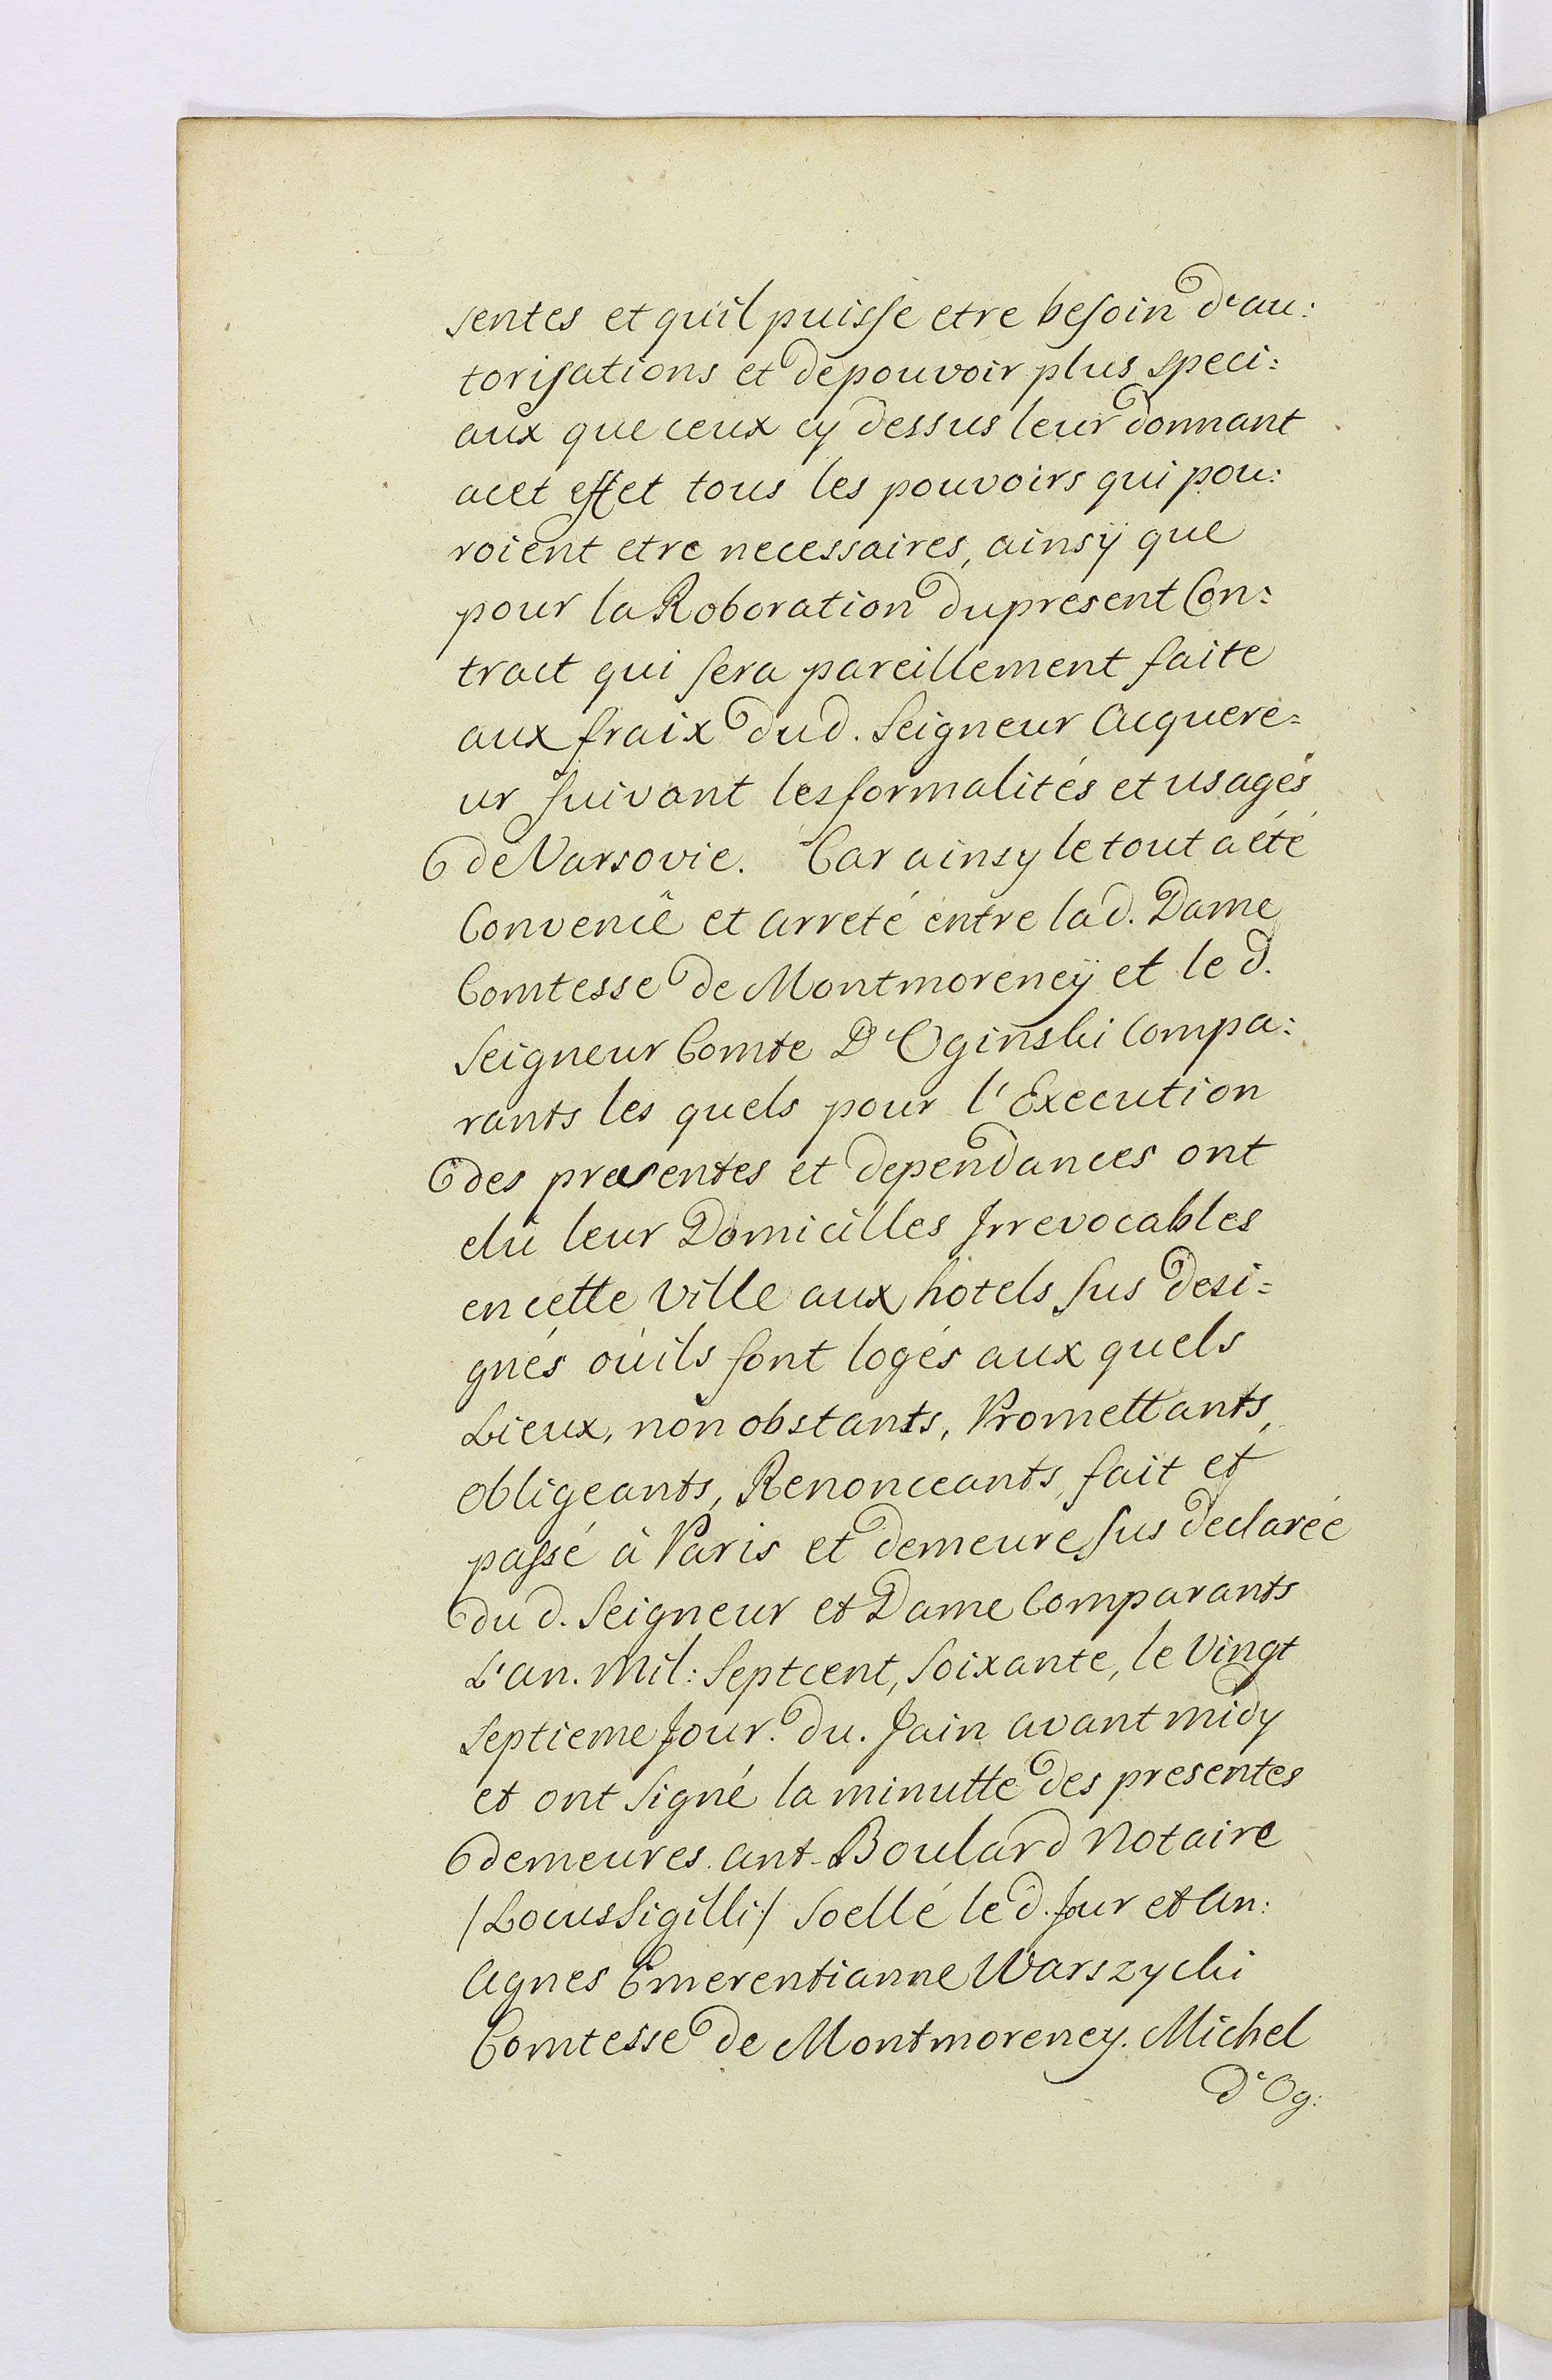 sentes et qu'il puisse etre besoin d'au:
torisations et depouvoir plus speci:
aux que ceux cy dessus leur donnant
acet effet tous les pouvoirs qui pou:
roient etre necessaires, ainsÿ que
pour la Roboration du present Con:
tract qui sera pareillement faite
aux fraix dud. Seigneur Acquere=
ur suivant les formalités et usagés
de Varsovie. Car ainsy le tout a été
Convenû et arreté entre lad. Dame
Comtesse de Montmorencÿ et le d.
Seigneur Comte D'Oginski Compa:
rants les quels pour l'Execution
des presentes et dependances ont
elu leur Domicilles Jrrevocables
en cette Ville aux hotels sus desi=
gnés oúils sont logés aux quels
Lieux, non obstants, Promettants,
obligeants, Renonceants, fait et
passé à Paris et demeure sus declarée
du d. Seigneur et Dame Comparants
L'an. Mil: Septcent, Soixante, le Vingt
Septieme Jour. du. Jain avant midy
et ont signé la minutte des presentes
demeures. ant. Boulard Notaire
/Locus Sigilli/ Scellé le d. Jour et An:
Agnes Emerentianne Warszycki
Comtesse de Montmorency. Michel
d'Og: